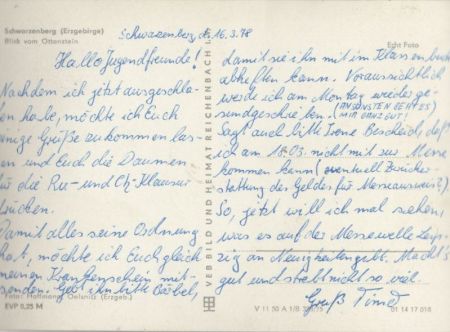 Schwarzenberg (Erzgebirge)
Blick vom Ottenstein
Schwarzenberg, d. 16.3.78
Echt Foto
Hallo Jugendfreunde!
Nachdem ich jetzt ausgeschla-
fen habe, möchte ich Euch
einige Grüße zukommen las-
sen und Euch die Daumen
für die Ru- und Ch-Klausur
drücken.
Damit alles seine Ordnung
hat, möchte ich Euch gleich
meinen Krankenschein mit-
senden. Gebt ihn bitte Bärbel,
damit sie ihn mit im Klassenbuch
abheften kann. Voraussichtlich
werde ich am Montag wieder ge-
sundgeschrieben. (ANSONSTEN GEHT ES
MIR GANZ GUT!)
Sagt auch bitte Irene Bescheid, daß
ich am 18.03. nicht mit zur Messe
kommen kann (eventuell Zurücker-
stattung des Geldes für Messeausweis?)
So, jetzt will ich mal sehen,
was es auf der Messewelle Leip-
zig an Neuigkeiten gibt. Macht's
gut und strebt nicht so viel.
Gruß
VEB BILD UND HEIMAT REICHENBACH i.
Foto: Hoffmann, Oelsnitz (Erzgeb.)
EVP 0,25 M
V 11 50 A 1/B
01 14 17 018